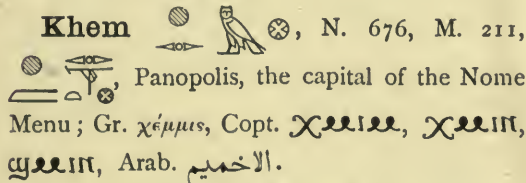 Khem , N. 676, M. 211,
, Panopolis, the capital of the Nome
Menu; Gr. χέμμις, Copt. ⲭⲙⲓⲙ, ⲭⲙⲓⲛ,
ϣⲙⲓⲛ, Arab. الاخميم.